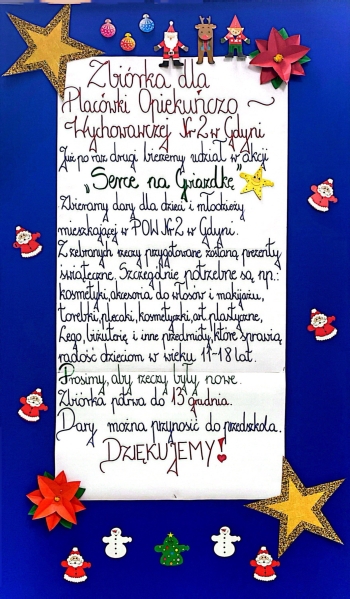 Zbiórka dla
Placówki Opiekuńczo ~
Wychowawczej Nr 2 w Gdyni
Już po raz drugi bierzemy udział w akcji
„Serce na Gwiazdkę"
Zbieramy dary dla dzieci i młodzieży
mieszkającej w POW Nr 2 w Gdyni.
Z zebranych rzeczy przygotowane zostaną prezenty
świąteczne. Szczególnie potrzebne są np.:
kosmetyki, akcesoria do włosów i makijażu,
torebki, plecaki, kosmetyczki, art. plastyczne,
Lego, biżuterię i inne przedmioty, które sprawią
radość dzieciom w wieku 11-18 lat.
Prosimy, aby rzeczy były nowe.
Zbiórka potrwa do 13 grudnia.
Dary można przynosić do przedszkola.
DZIĘKUJEMY!